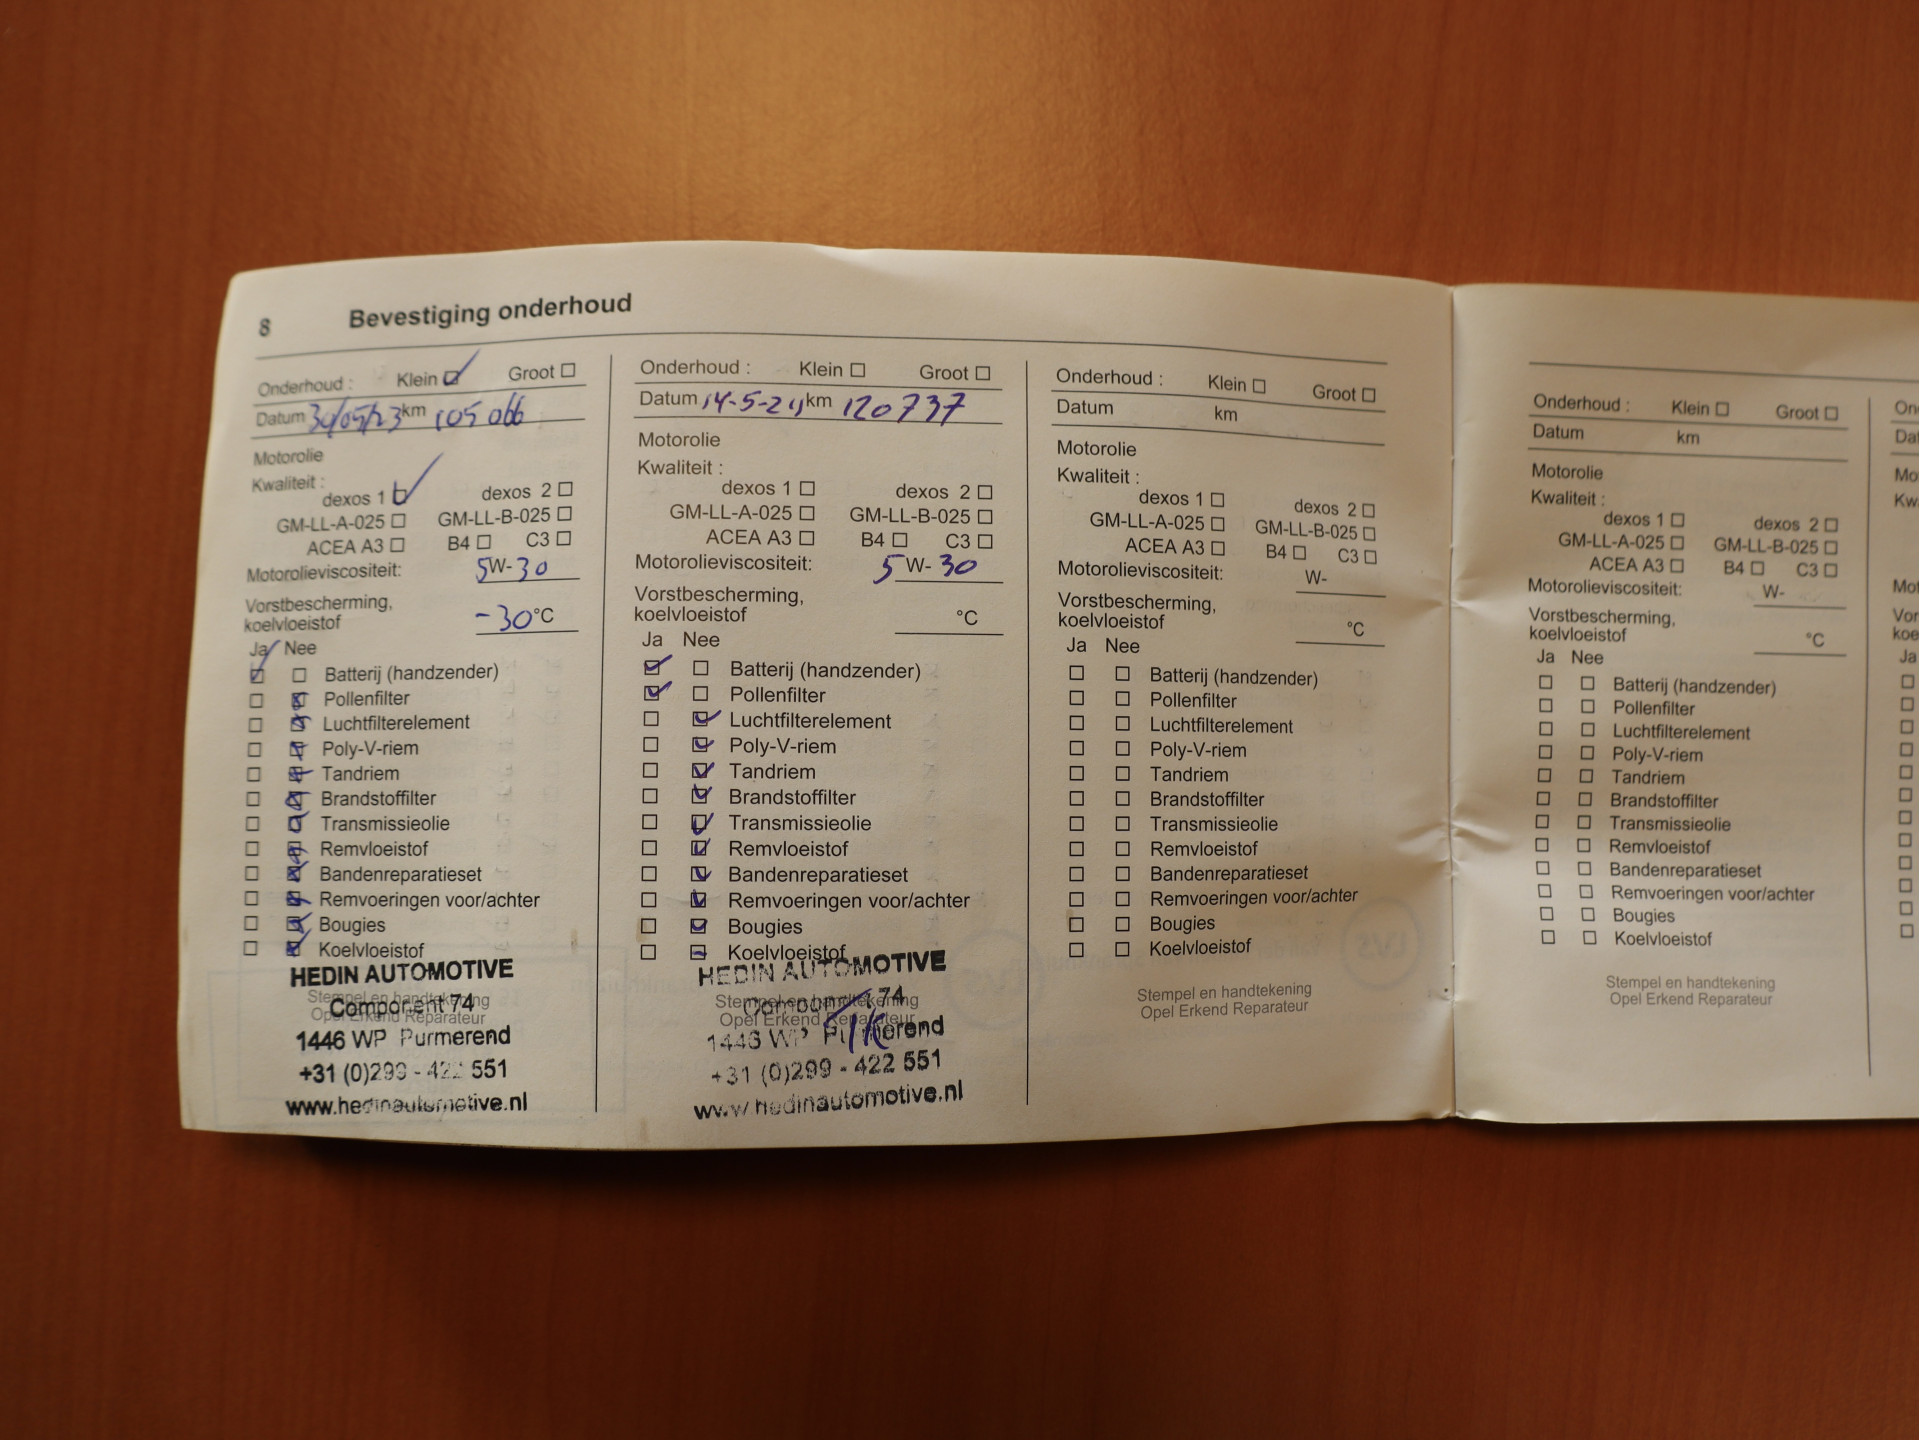 8 Bevestiging onderhoud
Onderhoud : Klein ☑ Groot ☐
Datum 30/05/23 km 105 066
Motorolie
Kwaliteit :
dexos 1 ☑ dexos 2 ☐
GM-LL-A-025 ☐ GM-LL-B-025 ☐
ACEA A3 ☐ B4 ☐ C3 ☐
Motorolieviscositeit: 5W-30
Vorstbescherming,
koelvloeistof -30°C
Ja Nee
☑ ☐ Batterij (handzender)
☐ ☒ Pollenfilter
☐ ☒ Luchtfilterelement
☐ ☒ Poly-V-riem
☐ ☒ Tandriem
☐ ☒ Brandstoffilter
☐ ☒ Transmissieolie
☐ ☒ Remvloeistof
☐ ☒ Bandenreparatieset
☐ ☒ Remvoeringen voor/achter
☐ ☒ Bougies
☐ ☒ Koelvloeistof
HEDIN AUTOMOTIVE
Stempel en handtekening
Component 74
Opel Erkend Reparateur
1446 WP Purmerend
+31 (0)299 - 422 551
www.hedinautomotive.nl
Onderhoud : Klein ☐ Groot ☐
Datum 14-5-24 km 120737
Motorolie
Kwaliteit :
dexos 1 ☐ dexos 2 ☐
GM-LL-A-025 ☐ GM-LL-B-025 ☐
ACEA A3 ☐ B4 ☐ C3 ☐
Motorolieviscositeit: 5 W- 30
Vorstbescherming,
koelvloeistof °C
Ja Nee
☑ ☐ Batterij (handzender)
☑ ☐ Pollenfilter
☐ ☑ Luchtfilterelement
☐ ☑ Poly-V-riem
☐ ☑ Tandriem
☐ ☑ Brandstoffilter
☐ ☑ Transmissieolie
☐ ☑ Remvloeistof
☐ ☑ Bandenreparatieset
☐ ☑ Remvoeringen voor/achter
☐ ☑ Bougies
☐ ☑ Koelvloeistof
HEDIN AUTOMOTIVE
Stempel en handtekening
Component 74
Opel Erkend Reparateur
1446 WP Purmerend
+31 (0)299 - 422 551
www.hedinautomotive.nl
Onderhoud : Klein ☐ Groot ☐
Datum km
Motorolie
Kwaliteit :
dexos 1 ☐ dexos 2 ☐
GM-LL-A-025 ☐ GM-LL-B-025 ☐
ACEA A3 ☐ B4 ☐ C3 ☐
Motorolieviscositeit: W-
Vorstbescherming,
koelvloeistof °C
Ja Nee
☐ ☐ Batterij (handzender)
☐ ☐ Pollenfilter
☐ ☐ Luchtfilterelement
☐ ☐ Poly-V-riem
☐ ☐ Tandriem
☐ ☐ Brandstoffilter
☐ ☐ Transmissieolie
☐ ☐ Remvloeistof
☐ ☐ Bandenreparatieset
☐ ☐ Remvoeringen voor/achter
☐ ☐ Bougies
☐ ☐ Koelvloeistof
Stempel en handtekening
Opel Erkend Reparateur
Onderhoud : Klein ☐ Groot ☐
Datum km
Motorolie
Kwaliteit :
dexos 1 ☐ dexos 2 ☐
GM-LL-A-025 ☐ GM-LL-B-025 ☐
ACEA A3 ☐ B4 ☐ C3 ☐
Motorolieviscositeit: W-
Vorstbescherming,
koelvloeistof °C
Ja Nee
☐ ☐ Batterij (handzender)
☐ ☐ Pollenfilter
☐ ☐ Luchtfilterelement
☐ ☐ Poly-V-riem
☐ ☐ Tandriem
☐ ☐ Brandstoffilter
☐ ☐ Transmissieolie
☐ ☐ Remvloeistof
☐ ☐ Bandenreparatieset
☐ ☐ Remvoeringen voor/achter
☐ ☐ Bougies
☐ ☐ Koelvloeistof
Stempel en handtekening
Opel Erkend Reparateur
Ja